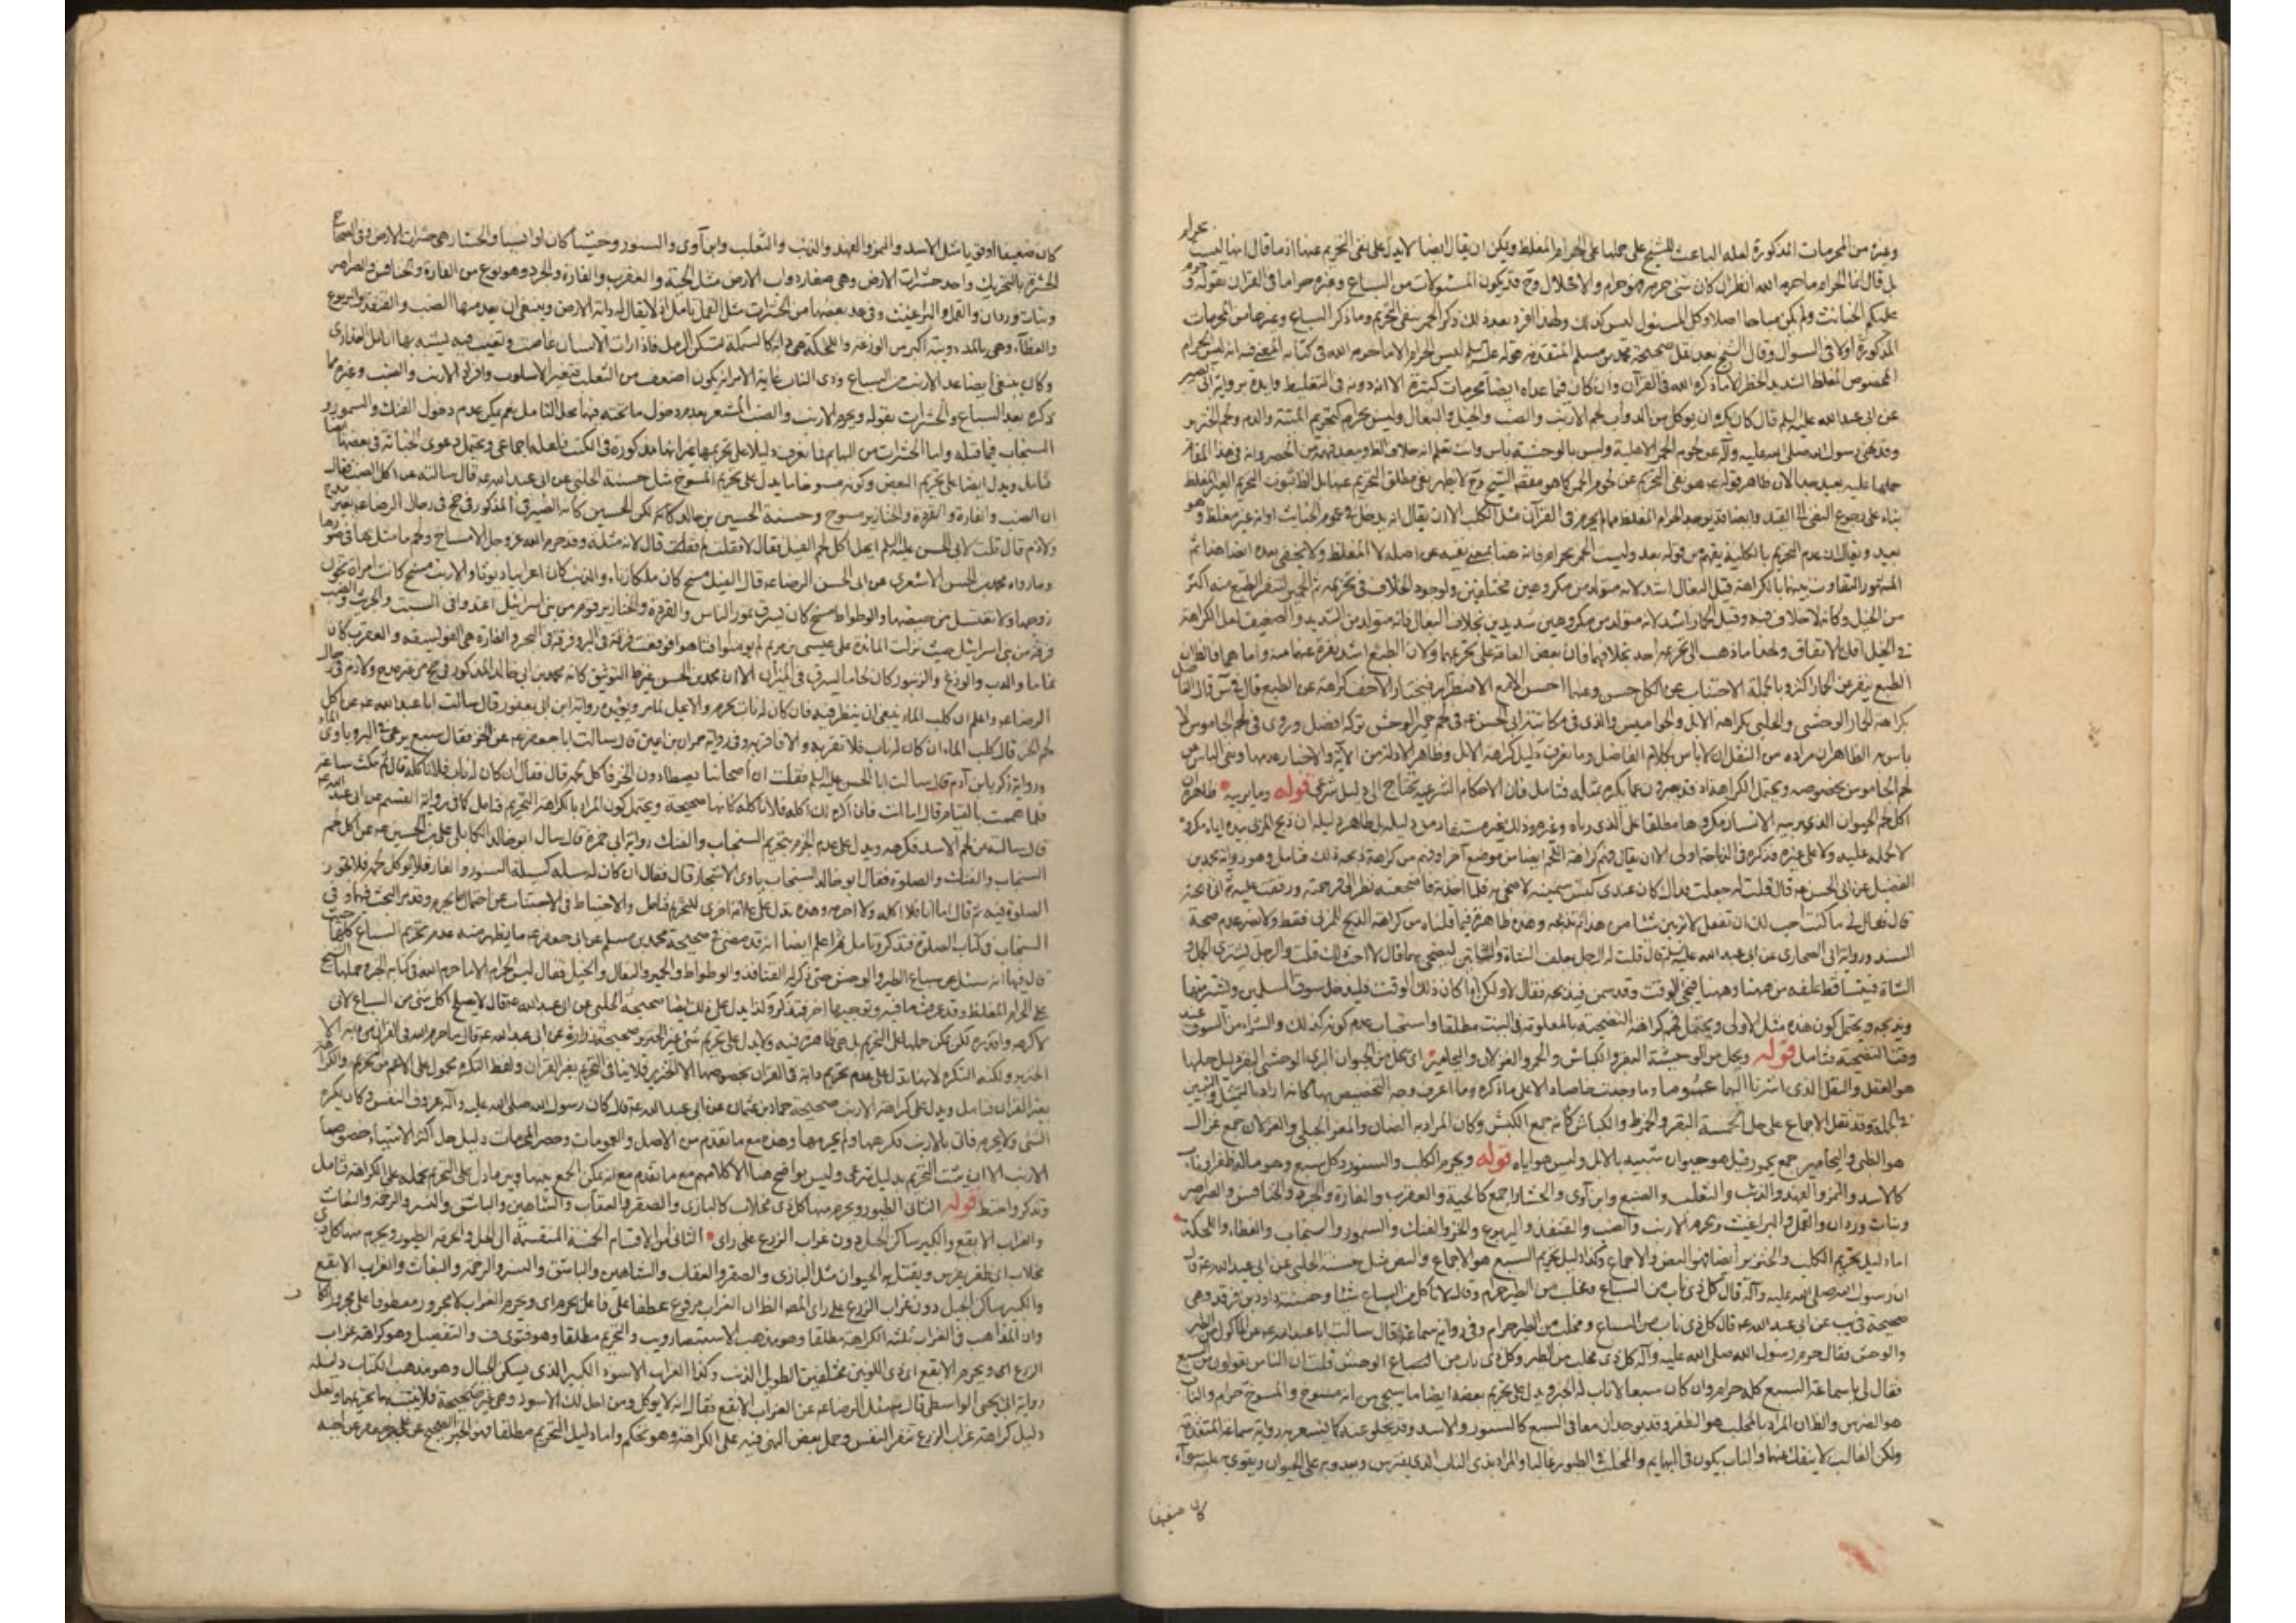 وغيره من المحرمات المذكورة لعله الباعث للشيخ على حملها على الحرام المغلظ ويمكن ان يقال ايضا لا يدل على نفى التحريم عنها اذ ما قال انها ليست بحرام
بل قال انما الحرام ما حرم الله انظر ان كان شئ حرمه فهو حرام والا فحلال وح قد يكون المسئولات من السباع وغيره حراما فى القرآن بقوله
عليكم الخبائث ولم يكن مباحا اصلا وكل المسئول ليس كذلك ولهذا افرد بعد ذلك ذكر الحمر بنفى التحريم وما ذكر السباع وغيرها من المحرمات
المذكورة اولا فى السؤال وقال الشيخ بعد نقل صحيحة محمد بن مسلم المتقدمة قوله عليه السلم ليس الحرام الا ما حرم الله فى كتابه المعنى فيه انه ليس الحرام
المخصوص المغلظ الشديد الحظر الا ما ذكره الله فى القرآن وان كان فيما عداه ايضا محرمات كثيرة الا انه دونه فى التغليظ وايده برواية ابى بصير
عن ابى عبد الله عليه السلم قال كان يكره ان يؤكل من الدواب لحم الارنب والضب والخيل والبغال وليس بحرام كتحريم الميتة والدم ولحم الخنزير
وقد نهى رسول الله صلى الله عليه وآله عن لحوم الحمر الاهلية وليس بالوحشية باس وانت تعلم انه خلاف الظاهر
حملها عليه بعيد جدا لان ظاهر قوله هو نفى التحريم عن لحوم الحمر كما هو مفقه الشيخ وح لا يظهر نفى مطلق التحريم عنها بل الظاهر ثبوت التحريم الغير المغلظ
بناء على رجوع النفى الى القيد وايضا قد يوجد الحرام المغلظ مما لم يحرم فى القرآن مثل الكلب الا ان يقال انه يدخل فى عموم الخبائث او انه غير مغلظ وهو
بعيد ويقال ان عدم التحريم بالكلية يفهم من قوله بعد وليست الحمر بحرام فانه هنا بمعنى نفيه عن اصله لا المغلظ ولا يخفى بعده ايضا هنا ثم
المشهور التفاوت بينها بالكراهة قيل البغال اشد لانه متولد من مكروهين مختلفين ولوجود الخلاف فى تحريمه ثم الحمير لتنفر الطبع منه اكثر
من الخيل وكانه لا خلاف فيه وقيل الحمار اشد لانه متولد من مكروهين شديدين بخلاف البغال فانه متولد من الشديد والضعيف لعل الكراهة
فى الخيل اقل للاتفاق ولهذا ما ذهب الى تحريمه احد بخلافهما فان بعض العامة على تحريمهما ولان الطبع اشد نفرة عنهما منه واما هما فالظاهر ان
الطبع ينفر عن الحمار اكثر وبالجملة الاجتناب عن الكل حسن
بكراهة الحمار الوحشى والحلبى بكراهة الابل والجواميس والذى فى مكاتبة ابى الحسن عه فى لحم حمير الوحش تركه افضل وروى فى لحم الجاموس لا
باس به الظاهر ان مراده من النقل ان لا باس بكلام الفاضل وما نعرف دليل كراهة الابل وظاهر الادلة من الآية والاخبار عدمها ونفى الباس عن
لحم الجاموس بخصوصه ويحتمل الكراهة اذ قد يعبرون عما يكره بمثله فتامل فان الاحكام الشرعية تحتاج الى دليل شرعى قوله وما يربيه ظاهره ان
اكل لحم الحيوان الذى يربيه الانسان مكروها مطلقا على الذى رباه وغيره وذلك غير مستفاد من دليله بل ظاهر دليله ان ذبح المربى بيده اياه مكروه
لا اكله عليه ولا على غيره فذكره فى الذباحة اولى الا ان يقال فهم كراهة اللحم ايضا من موضع آخر او فهم من كراهة ذبحه ذلك فتامل وهو رواية محمد بن
الفضيل عن ابى الحسن عه قال قلت له جعلت فداك كان عندى كبش سمين لاضحى به فلما اخذته واضجعته نظر الى فرحمته ورققت عليه ثم انى ذبحته
قال فقال لى ما كنت احب لك ان تفعل لا تربين شيئا من هذا ثم تذبحه وهذه ظاهرة فيما قلناه من كراهة الذبح للمربى فقط ولا يضر عدم صحة
السند ورواية ابى الصحارى عن ابى عبد الله عليه السلم قال قلت له الرجل يعلف الشاة والشاتين ليضحى بها قال لا احب ذلك قلت والرجل يشترى الجمل او
الشاة فيتساقط علفه من هيهنا وهيهنا فيجئ الوقت وقد سمن فيذبحه فقال لا ولكن اذا كان ذلك الوقت فليدخل سوق المسلمين وليشتر منها
ويذبحه ويحتمل كون هذه مثل الاولى ويحتمل فهم كراهة التضحية بالمعلوفة فى البيت مطلقا واستحباب عدم كونه كذلك والشراء من السوق عند
وقت التضحية فتامل قوله ويحل من الوحشية البقر والكباش والحمر والغزلان واليحامير اى يحل من الحيوان البرى الوحشى البقر دليل حلها
هو العقل والنقل الذى اشرنا اليهما عموما وما وجدت خاصا دالا على ما ذكره وما اعرف وجه التخصيص بها كانه اراد التمثيل
فى الجملة وقد نقل الاجماع على حل الخمسة البقر والحمر والكباش كانه جمع الكبش وكان المراد به الضان والمعز الجبلى والغزلان جمع غزال
هو الظبى واليحامير جمع يحمور قيل هو حيوان شبيه بالابل وليس هو اياه قوله ويحرم الكلب والسنور وكل سبع وهو ما له ظفر او ناب
كالاسد والنمر والفهد والذئب والثعلب والضبع وابن آوى والحشار اجمع كالحية والعقرب والفارة والجرذ والخنافس والصراصر
وبنات وردان والقمل والبراغيث ويحرم الارنب والضب والقنفذ واليربوع والخز والفنك والسمور والسنجاب والعظاء واللحكة
اما دليل تحريم الكلب والخنزير ايضا فهو النص والاجماع وكذا دليل تحريم السبع هو الاجماع والنص مثل حسنة الحلبى عن ابى عبد الله عه قال
ان رسول الله صلى الله عليه وآله قال كل ذى ناب من السباع ومخلب من الطير حرام وقال لا تاكل من السباع شيئا وحسنة داود بن فرقد وهى
صحيحة فى يب عن ابى عبد الله عه قال كل ذى ناب من السباع ومخلب من الطير حرام وفى رواية سماعة قال سالت ابا عبد الله عه عن الماكول من الطير
والوحش فقال حرم رسول الله صلى الله عليه وآله كل ذى مخلب من الطير وكل ذى ناب من السباع الوحش قلت ان الناس يقولون من السبع
فقال لى يا سماعة السبع كله حرام وان كان سبعا لا ناب له الخبر ويدل على تحريم بعضه ايضا ما سيجئ من انه مسوخ والمسوخ حرام والناب
هو الضرس والظان المراد بالمخلب هو الظفر وقد يوجدان معا فى السبع كالسنور والاسد وقد يخلو عنه كما يشعر به رواية سماعة المتقدمة
ولكن الغالب لا ينفك عنهما والناب يكون فى البهايم والمخلب فى الطيور غالبا والمراد بذى الناب الذى يفترس ويعدو به على الحيوان ويقوى به عليه سواء
كان ضعيفا
كان ضعيفا او قويا مثل الاسد والنمر والفهد والذئب والثعلب وابن آوى والسنور وحشيا كان او انسيا والحشار هى حشرات الارض وفى الصحاح
الحشرة بالتحريك واحد حشرات الارض وهى صغار دواب الارض مثل الحية والعقرب والفارة والجرذ وهو نوع من الفارة والخنافس والصراصر
وبنات وردان والقمل والبراغيث وفى عد بعضها من الحشرات مثل القمل تامل اذ لا يقال له دابة الارض وينبغى ان يعد منها الضب والقنفذ واليربوع
والعظاء وهى بالمد دويبة اكبر من الوزغة واللحكة هى دابة كالسمكة تسكن الرمل فاذا رات الانسان غاصت وتغيبت فيه ليشبه بها انامل العذارى
وكان ينبغى ايضا عد الارنب من السباع وذى الناب غاية الامر انه يكون اضعف من الثعلب فتغيير الاسلوب وافراد الارنب والضب وغيره مما
ذكره بعد السباع والحشرات بقوله ويحرم الارنب والضب المشعر بعدم دخول ما تحته فيها محل التامل نعم يمكن عدم دخول الفنك والسمور و
السنجاب فيما قبله واما الحشرات من البهايم فما نعرف دليلا على تحريمها غير انها مذكورة فى الكتب فلعله اجماعى ويحتمل دعوى الخباثة فى بعضها ايضا
فتامل ويدل ايضا على تحريم البعض وكونه مسوخا ما يدل على تحريم المسوخ مثل حسنة الحلبى عن ابى عبد الله عه قال سالته عن اكل الضب فقال
ان الضب والفارة والقردة والخنازير مسوخ وحسنة الحسين بن خالد كانه لكن الحسين كانه الصيرفى المذكور فى جخ فى رجال الرضا عه بغير مدح
ولا ذم قال قلت لابى الحسن عليه السلم ايحل اكل لحم الفيل فقال لا فقلت لم فقال لانه مثلة وقد حرم الله عز وجل الامساخ ولحم ما مثل بها فى صورها
وما رواه محمد بن الحسن الاشعرى عن ابى الحسن الرضا عه قال الفيل مسخ كان ملكا زناء والذئب كان اعرابيا ديوثا والارنب مسخ كانت امراة تخون
زوجها ولا تغتسل من حيضها والوطواط مسخ كان يسرق تمور الناس والقردة والخنازير قوم من بنى اسرائيل اعتدوا فى السبت والجريث والضب
فرقة من بنى اسرائيل حيث نزلت المائدة على عيسى بن مريم لم يؤمنوا فتاهوا فوقعت فرقة فى البحر وفرقة فى البر والفارة هى الفويسقة والعقرب كان
نماما والدب والوزغ والزنبور كان لحاما يسرق فى الميزان الا ان محمد بن الحسن غير ظ التوثيق كانه محمد بن ابى خالد المذكور فى جخ من غير مدح ولا ذم فى رجال
الرضا عه واعلم ان كلب الماء ينبغى ان ينظر فيه فان كان له ناب يحرم والا يحل لما مر ويؤيده رواية ابن ابى يعفور قال سالت ابا عبد الله عه عن اكل
لحم الخز قال كلب الماء ان كان له ناب فلا تقربه والا فاقربه وفى رواية حمران بن اعين قال سالت ابا جعفر عه عن الخز فقال سبع يرعى فى البر وياوى الماء
ورواية زكريا بن آدم قال سالت ابا الحسن عليه السلم فقلت ان اصحابنا يصطادون الخز فآكل لحمه قال فقال ان كان له ناب فلا تاكله قال ثم مكث ساعة
فلما هممت بالقيام قال اما انت فانى اكره لك اكله فلا تاكله كانها صحيحة ويحتمل كون المراد بالكراهة التحريم فتامل كما فى رواية القسم عن ابى عبد الله عه
قال سالته عن لحم الاسد فكرهه ويدل على عدم الجزم بتحريم السنجاب والفنك رواية ابى حمزة قال سال ابو خالد الكابلى على بن الحسين عه عن اكل لحم
السنجاب والفنك والصلوة فقال ابو خالد السنجاب ياوى الاشجار قال فقال ان كان له سبلة كسبلة السنور والفار فلا يؤكل لحمه فلا تجوز
الصلوة فيه ثم قال اما انا فلا آكله ولا احرمه وهذه تدل على علامة اخرى للتحريم فتامل والاحتياط فى الاجتناب عن احتمال ما يحرم وقد مر البحث فيها وفى
السنجاب فى كتاب الصلوة فتذكر وتامل ثم اعلم ايضا انه قد مضى فى صحيحة محمد بن مسلم عن ابى جعفر عه ما يظهر منه عدم تحريم السباع كلها حيث
قال فيها انه سئل عن سباع الطير والوحش حتى ذكر له القنافذ والوطواط والحمير والبغال والخيل فقال ليس الحرام الا ما حرم الله فى كتابه الخبر حملها الشيخ
على الحرام المغلظ وقد عرفت ما فيه وتوجيهها اخر فتذكر وكذا يدل على ذلك ايضا صحيحة الحلبى عن ابى عبد الله عه قال لا يصلح اكل شئ من السباع لانى
لاكرهه واقذره لكن يمكن حملها على التحريم بل هى ظاهرة فيه ولا يدل على تحريم شئ غير الخنزير صحيحة زرارة عن ابى عبد الله عه قال ما حرم الله فى القرآن من دابة الا
الخنزير ولكنه النكرة لانها تدل على عدم تحريم دابة فى القرآن بخصوصها الا الخنزير فلا ينافى التحريم بغير القرآن ولفظ النكرة محمول على الاعم من التحريم والكراهة
بغير القرآن فتامل ويدل على كراهة الارنب صحيحة حماد بن عثمان عن ابى عبد الله عه قال كان رسول الله صلى الله عليه وآله عزوف النفس وكان يكره
الشئ ولا يحرمه فاتى بالارنب فكرهها ولم يحرمها وهذه مع ما تقدم من الاصل والعمومات وحصر المحرمات دليل حل اكثر الاشياء خصوصا
الارنب الا ان يثبت التحريم بدليل شرعى وليس بواضح هنا الا كلامهم مع ما تقدم مع انه يمكن الجمع بينها وبين ما دل على التحريم بحمله على الكراهة فتامل
وتذكر واحتط قوله الثانى الطيور ويحرم منها كل ذى مخلاب كالبازى والصقر والعقاب والشاهين والباشق والنسر والرخمة والبغاث
والغراب الابقع والكبير ساكن الجبل دون غراب الزرع على راى الثانى من الاقسام الخمسة المنقسمة الى الحل والحرمة الطيور ويحرم منها كل ذى
مخلاب اى ظفر يفرس ويقتل به الحيوان مثل البازى والصقر والعقاب والشاهين والباشق والنسر والرخمة والبغاث والغراب الابقع
والكبير ساكن الجبل دون غراب الزرع على راى المصر الظان الغراب مرفوع عطفا على فاعل يحرم اى ويحرم الغراب لا مجرور معطوفا على مجرور الكاف
وان المذاهب فى الغراب ثلثة الكراهة مطلقا وهو مذهب الاستبصار ويب والتحريم مطلقا وهو فتوى ف والتفصيل وهو كراهة غراب
الزرع اى ويحرم الابقع اى ذى اللونين مختلفين الطويل الذنب وكذا الغراب الاسود الكبير الذى يسكن الجبال وهو مذهب الكتاب دليله
رواية ابى يحيى الواسطى قال سئل الرضا عه عن الغراب الابقع فقال انه لا يؤكل ومن احل لك الاسود وهى غير صحيحة فلا يثبت بها تحريمها ولعل
دليل كراهة غراب الزرع تنفر النفس وحمل بعض النهى فيه على الكراهة وهو تحكم واما دليل التحريم مطلقا فهو الخبر الصحيح عن على بن جعفر عن اخيه